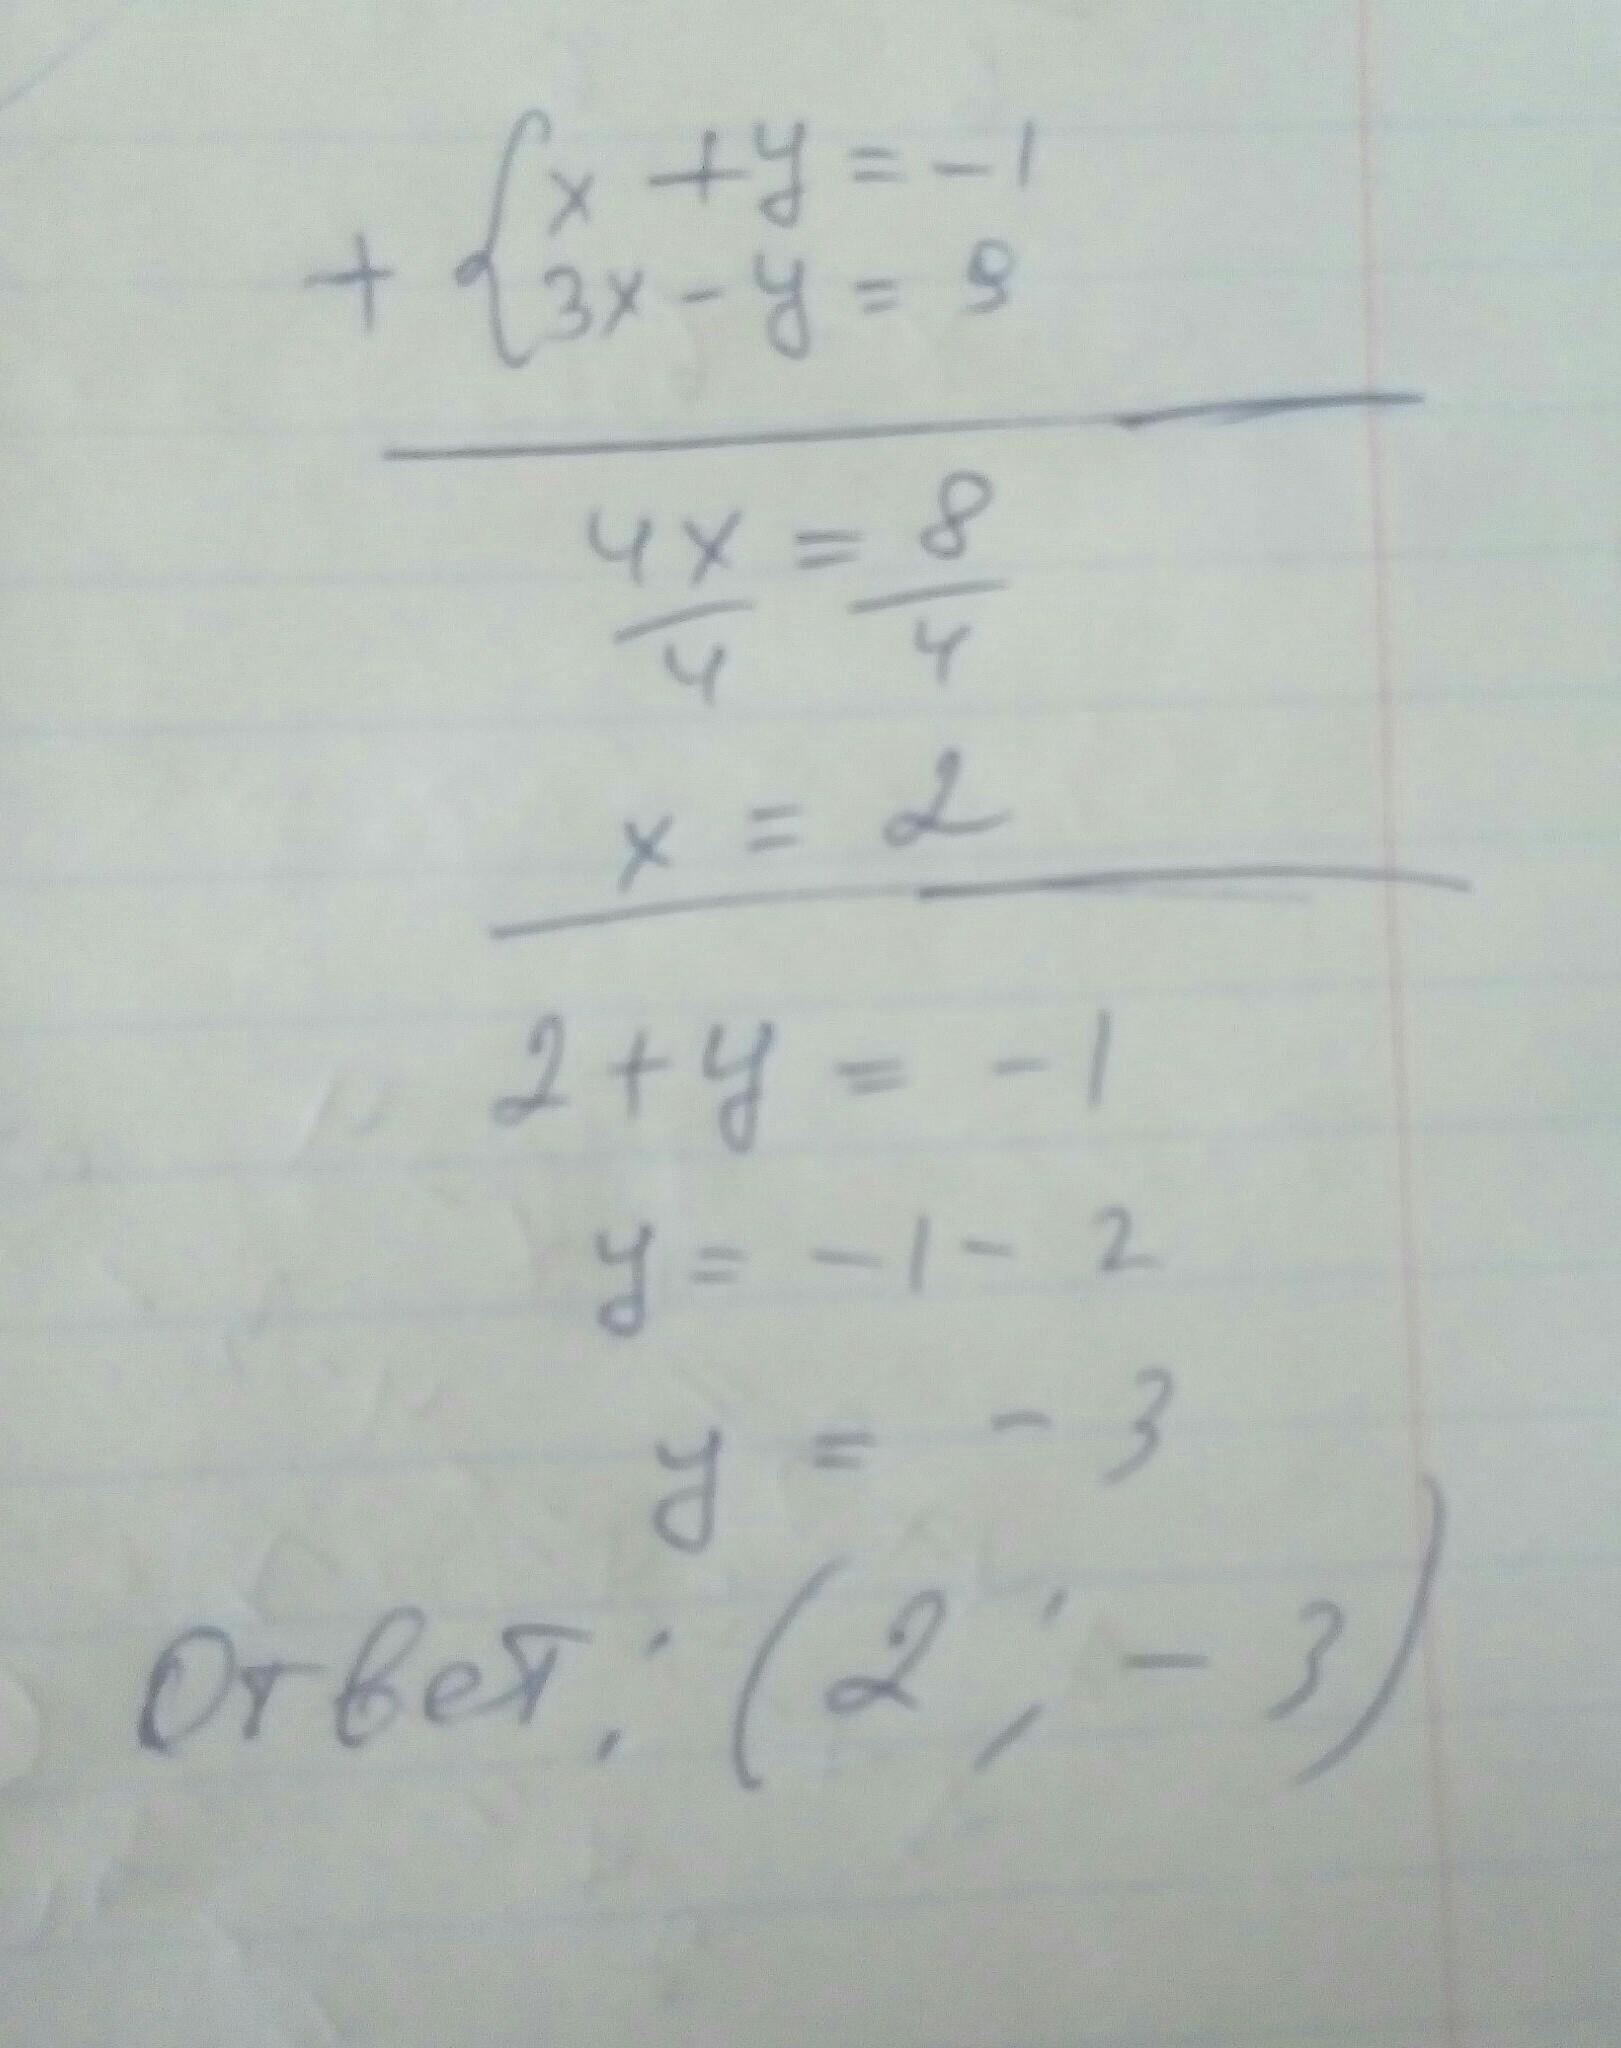 x + y = -1
+ { 3x - y = 9
4x = 8
4 4
x = 2
2 + y = -1
y = -1 - 2
y = -3
Ответ: (2; -3)